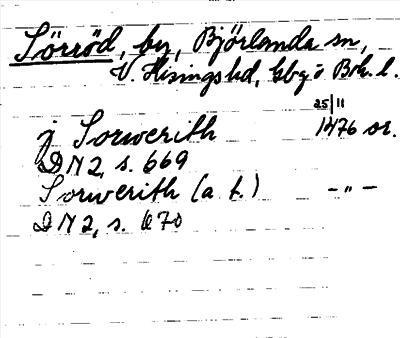 Sörröd, by, Björlanda sn,
V. Hisings hd, Gbg o Boh. l.
25/11
j Sorwerith 1476 or.
DN 2, s. 669
Sorwerith (a. f.) – " –
DN 2, s. 670